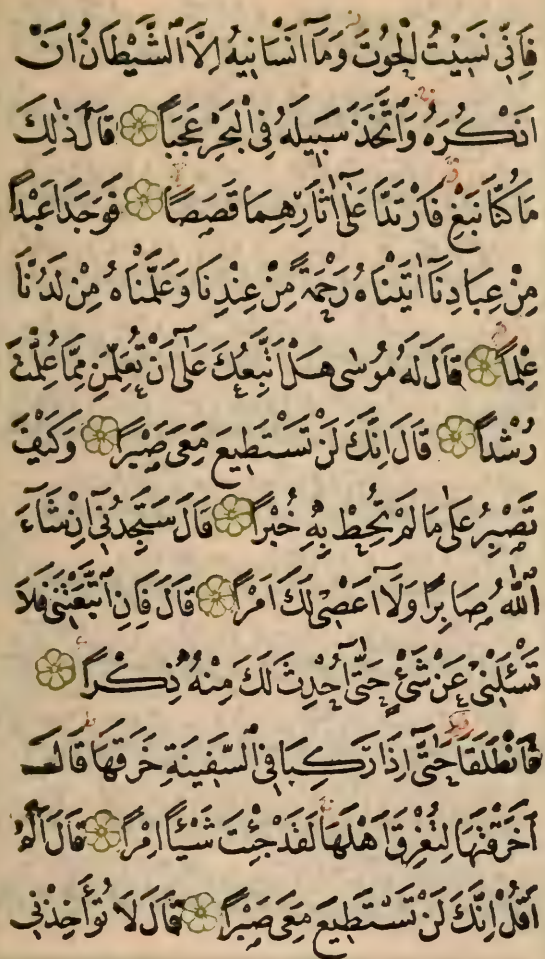 فَاِنّٖي نَسٖيتُ الْحُوتَ وَمَآ اَنْسَانٖيهُ اِلَّا الشَّيْطَانُ اَنْ
اَذْكُرَهُ وَاتَّخَذَ سَبٖيلَهُ فِي الْبَحْرِ عَجَبًا قَالَ ذٰلِكَ
مَا كُنَّا نَبْغِ فَارْتَدَّا عَلٰٓى اٰثَارِهِمَا قَصَصًا فَوَجَدَا عَبْدًا
مِنْ عِبَادِنَآ اٰتَيْنَاهُ رَحْمَةً مِنْ عِنْدِنَا وَعَلَّمْنَاهُ مِنْ لَدُنَّا
عِلْمًا قَالَ لَهُ مُوسٰى هَلْ اَتَّبِعُكَ عَلٰٓى اَنْ تُعَلِّمَنِ مِمَّا عُلِّمْتَ
رُشْدًا قَالَ اِنَّكَ لَنْ تَسْتَطٖيعَ مَعِيَ صَبْرًا وَكَيْفَ
تَصْبِرُ عَلٰى مَا لَمْ تُحِطْ بِهٖ خُبْرًا قَالَ سَتَجِدُنٖٓي اِنْ شَآءَ
اللّٰهُ صَابِرًا وَلَآ اَعْصٖي لَكَ اَمْرًا قَالَ فَاِنِ اتَّبَعْتَنٖي فَلَا
تَسْئَلْنٖي عَنْ شَيْءٍ حَتّٰٓى اُحْدِثَ لَكَ مِنْهُ ذِكْرًا
فَانْطَلَقَا حَتّٰٓى اِذَا رَكِبَا فِي السَّفٖينَةِ خَرَقَهَا قَالَ
اَخَرَقْتَهَا لِتُغْرِقَ اَهْلَهَا لَقَدْ جِئْتَ شَيْئًا اِمْرًا قَالَ اَلَمْ
اَقُلْ اِنَّكَ لَنْ تَسْتَطٖيعَ مَعِيَ صَبْرًا قَالَ لَا تُؤَاخِذْنٖي